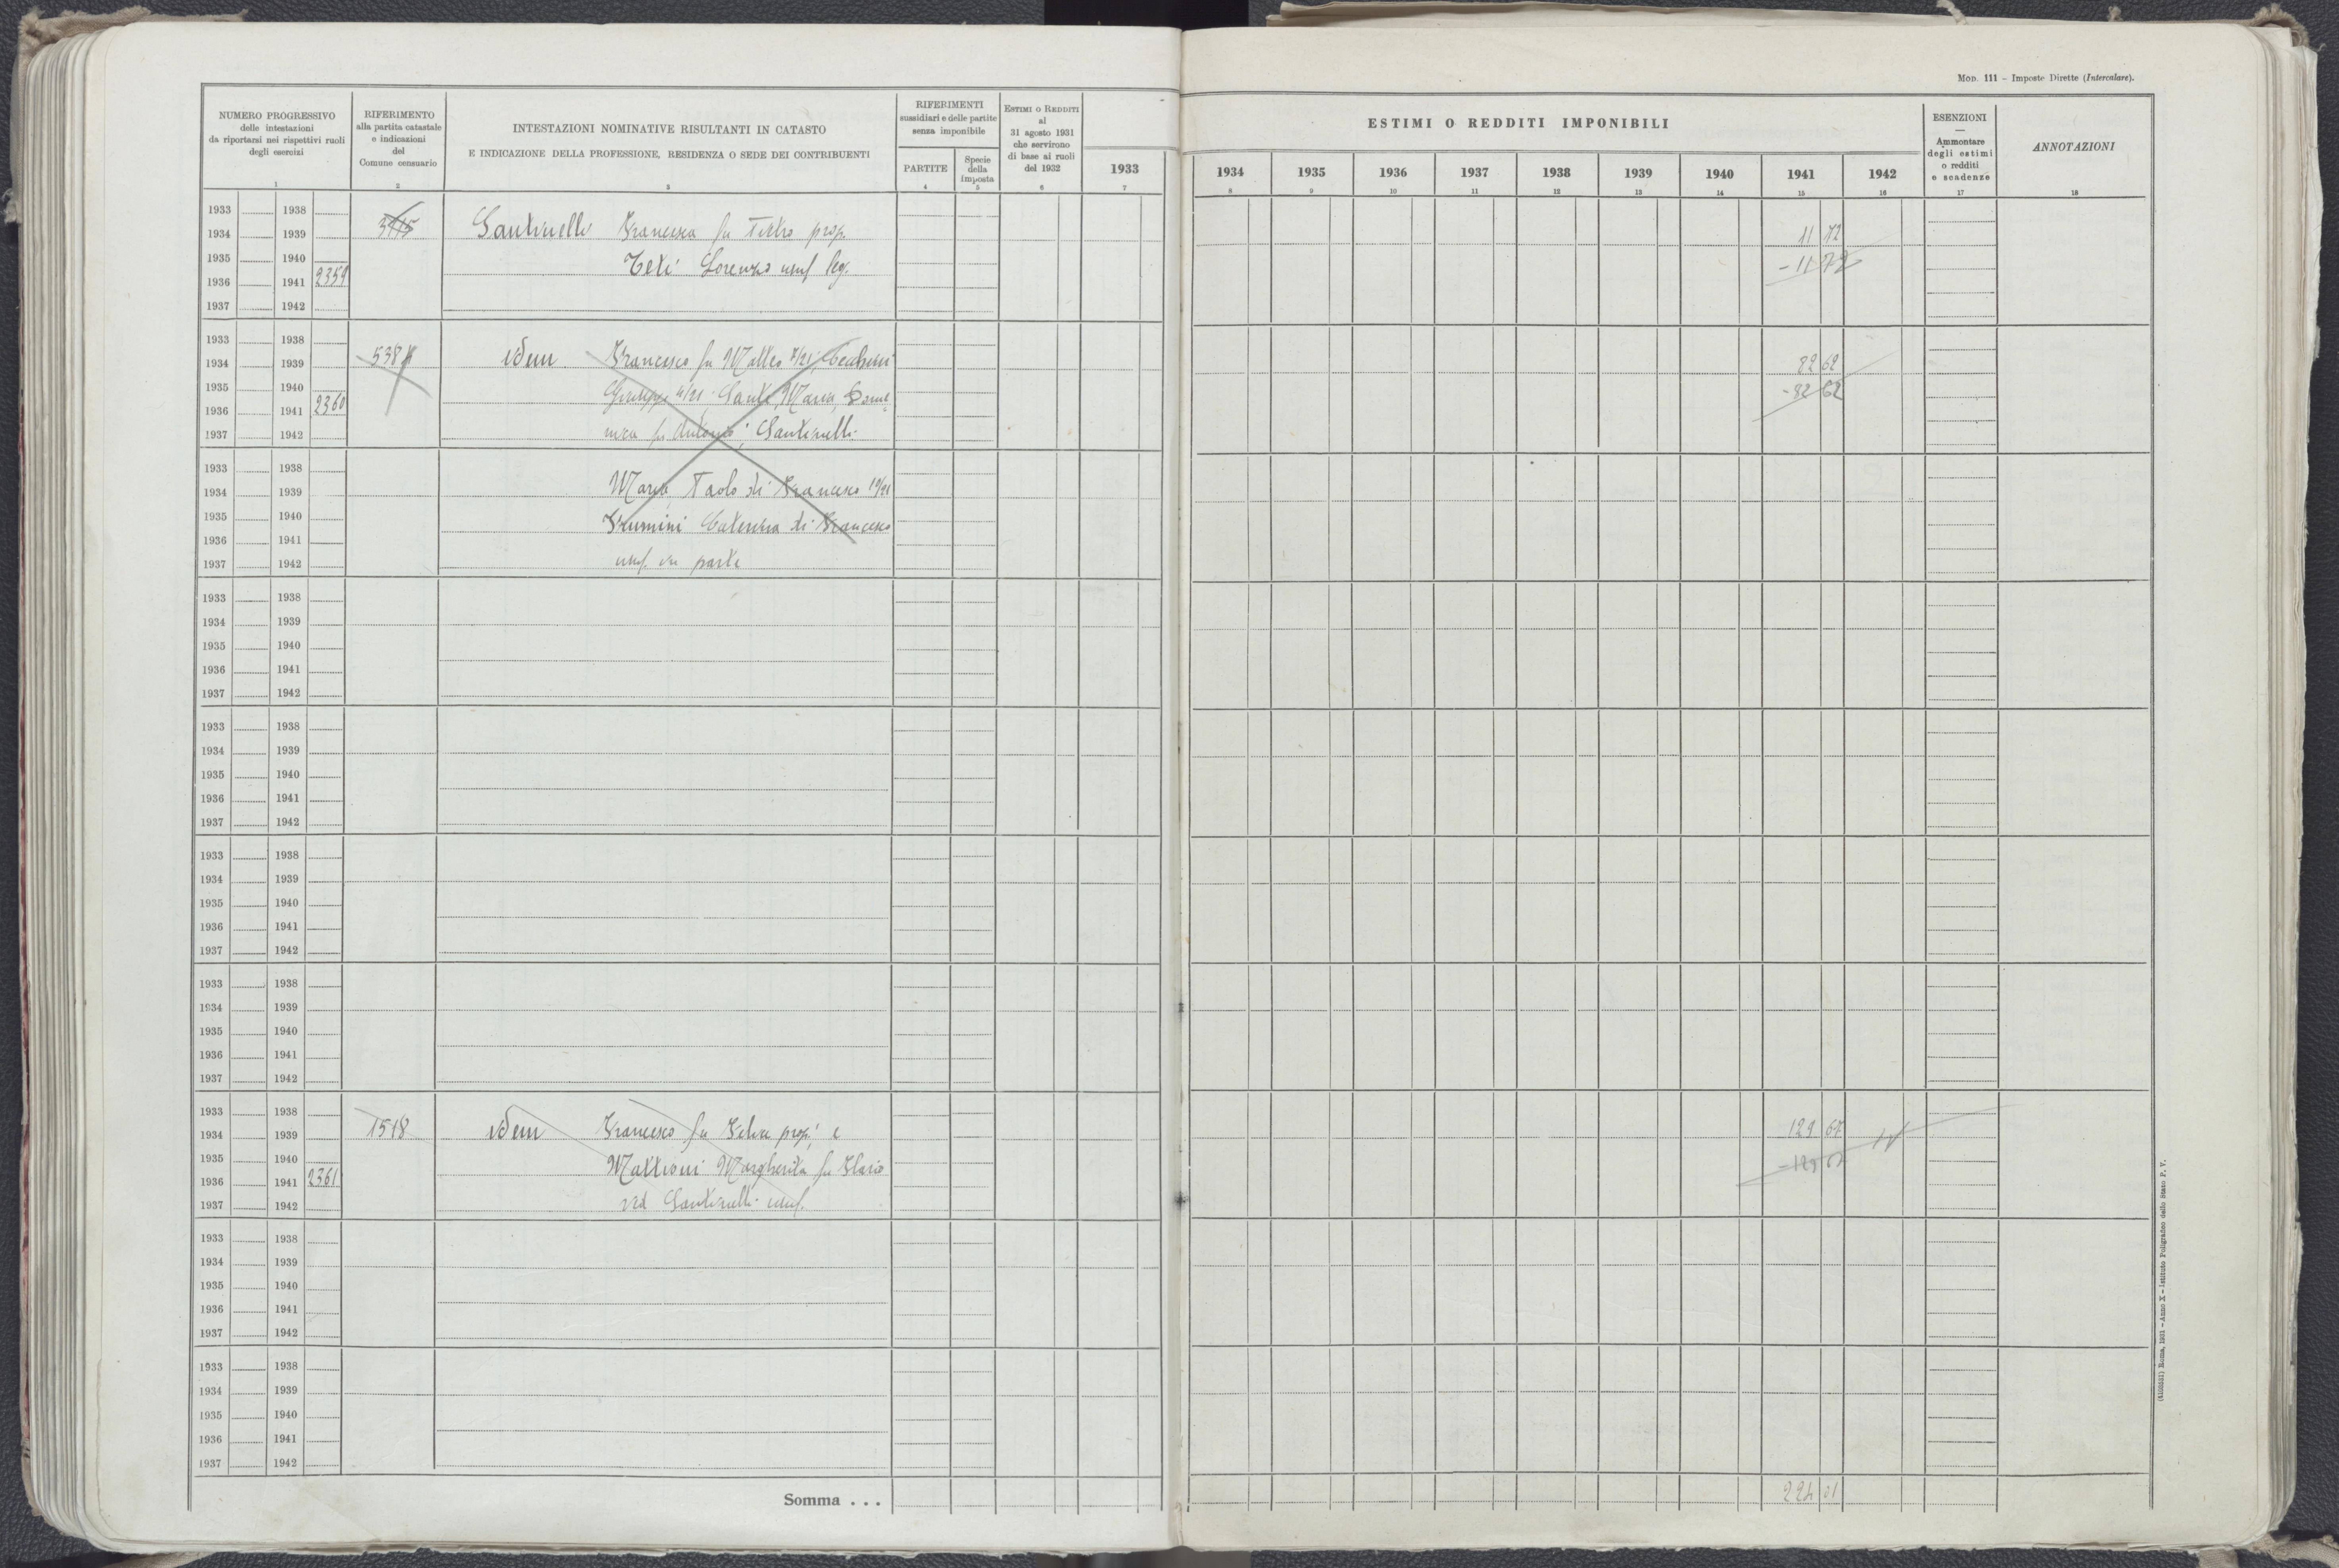 Mod. 111 - Imposte Dirette (Intercalare).
NUMERO PROGRESSIVO
delle intestazioni
da riportarsi nei rispettivi ruoli
degli esercizi
1
RIFERIMENTO
alla partita catastale
e indicazioni
del
Comune censuario
2
INTESTAZIONI NOMINATIVE RISULTANTI IN CATASTO
E INDICAZIONE DELLA PROFESSIONE, RESIDENZA O SEDE DEI CONTRIBUENTI
3
RIFERIMENTI
sussidiari e delle partite
senza imponibile
PARTITE
4
Specie
della
imposta
5
ESTIMI O REDDITI
al
31 agosto 1931
che servirono
di base ai ruoli
del 1932
6
1933
7
ESTIMI O REDDITI IMPONIBILI
1934 1935 1936 1937 1938 1939 1940 1941 1942
8 9 10 11 12 13 14 15 16
ESENZIONI
—
Ammontare
degli estimi
o redditi
e scadenze
17
ANNOTAZIONI
18
1933 1938
1934 1939 Santinelli Francesca fu Pietro prop. 11 72
1935 1940 Teti Lorenzo usuf leg. - 11 72
1936 1941 2359
1937 1942
1933 1938
1934 1939 538 idem Francesco fu Matteo 7/21 Cecchini 82 62
1935 1940 Giuseppe 4/21 Sante, Maria, Dome - 82 62
1936 1941 2360
1937 1942 nica fu Antonio; Santinelli
1933 1938
1934 1939 Maria Paolo di Francesco 10/21
1935 1940 Frumini Caterina di Francesco
1936 1941
1937 1942 usuf. in parte
1933 1938
1934 1939
1935 1940
1936 1941
1937 1942
1933 1938
1934 1939
1935 1940
1936 1941
1937 1942
1933 1938
1934 1939
1935 1940
1936 1941
1937 1942
1933 1938
1934 1939
1935 1940
1936 1941
1937 1942
1933 1938
1934 1939 1518 idem Francesco fu Felice prop. e 129 67
1935 1940 Mattioni Margherita fu Ilario - 129 67
1936 1941 2361
1937 1942 ved Santinelli usuf.
1933 1938
1934 1939
1935 1940
1936 1941
1937 1942
1933 1938
1934 1939
1935 1940
1936 1941
1937 1942
Somma . . . 224 01
(4103551) Roma, 1931 - Anno X - Istituto Poligrafico dello Stato P. V.